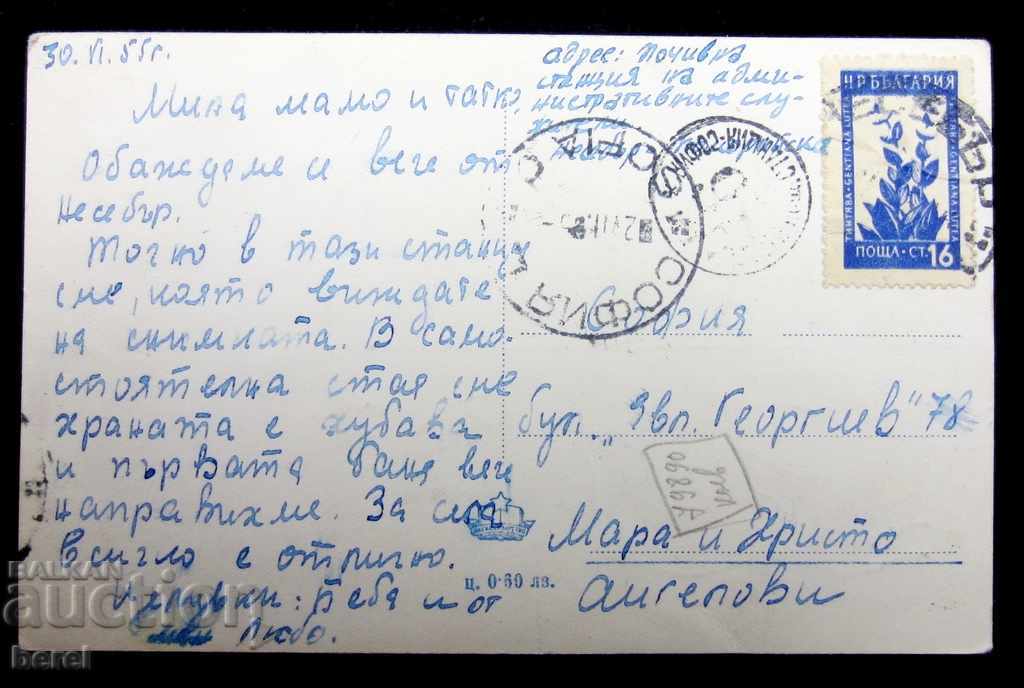 30. VI. 55г.
Мила мамо и татко,
Обаждаме се вече от
Несебър.
Точно в тази станция
сме, която виждате
на снимката. В само-
стоятелна стая сме
храната е хубава
и първата баня вече
направихме. За сега
всичко е отлично.
Целувки: Беба и от
Любо.
адрес: Почивна
станция на адми-
нистративните слу-
жители
Несебър
НР БЪЛГАРИЯ
ТИНТЯВА · GENTIANA LUTEA
ТИНТЯВА · GENTIANA LUTEA
ПОЩА · СТ. 16
СОФИЯ
София
бул. „Евл. Георгиев" 78
Мара и Христо
Ангелови
ц. 0·60 лв.
А9890
БАЛКАН
auction
berel